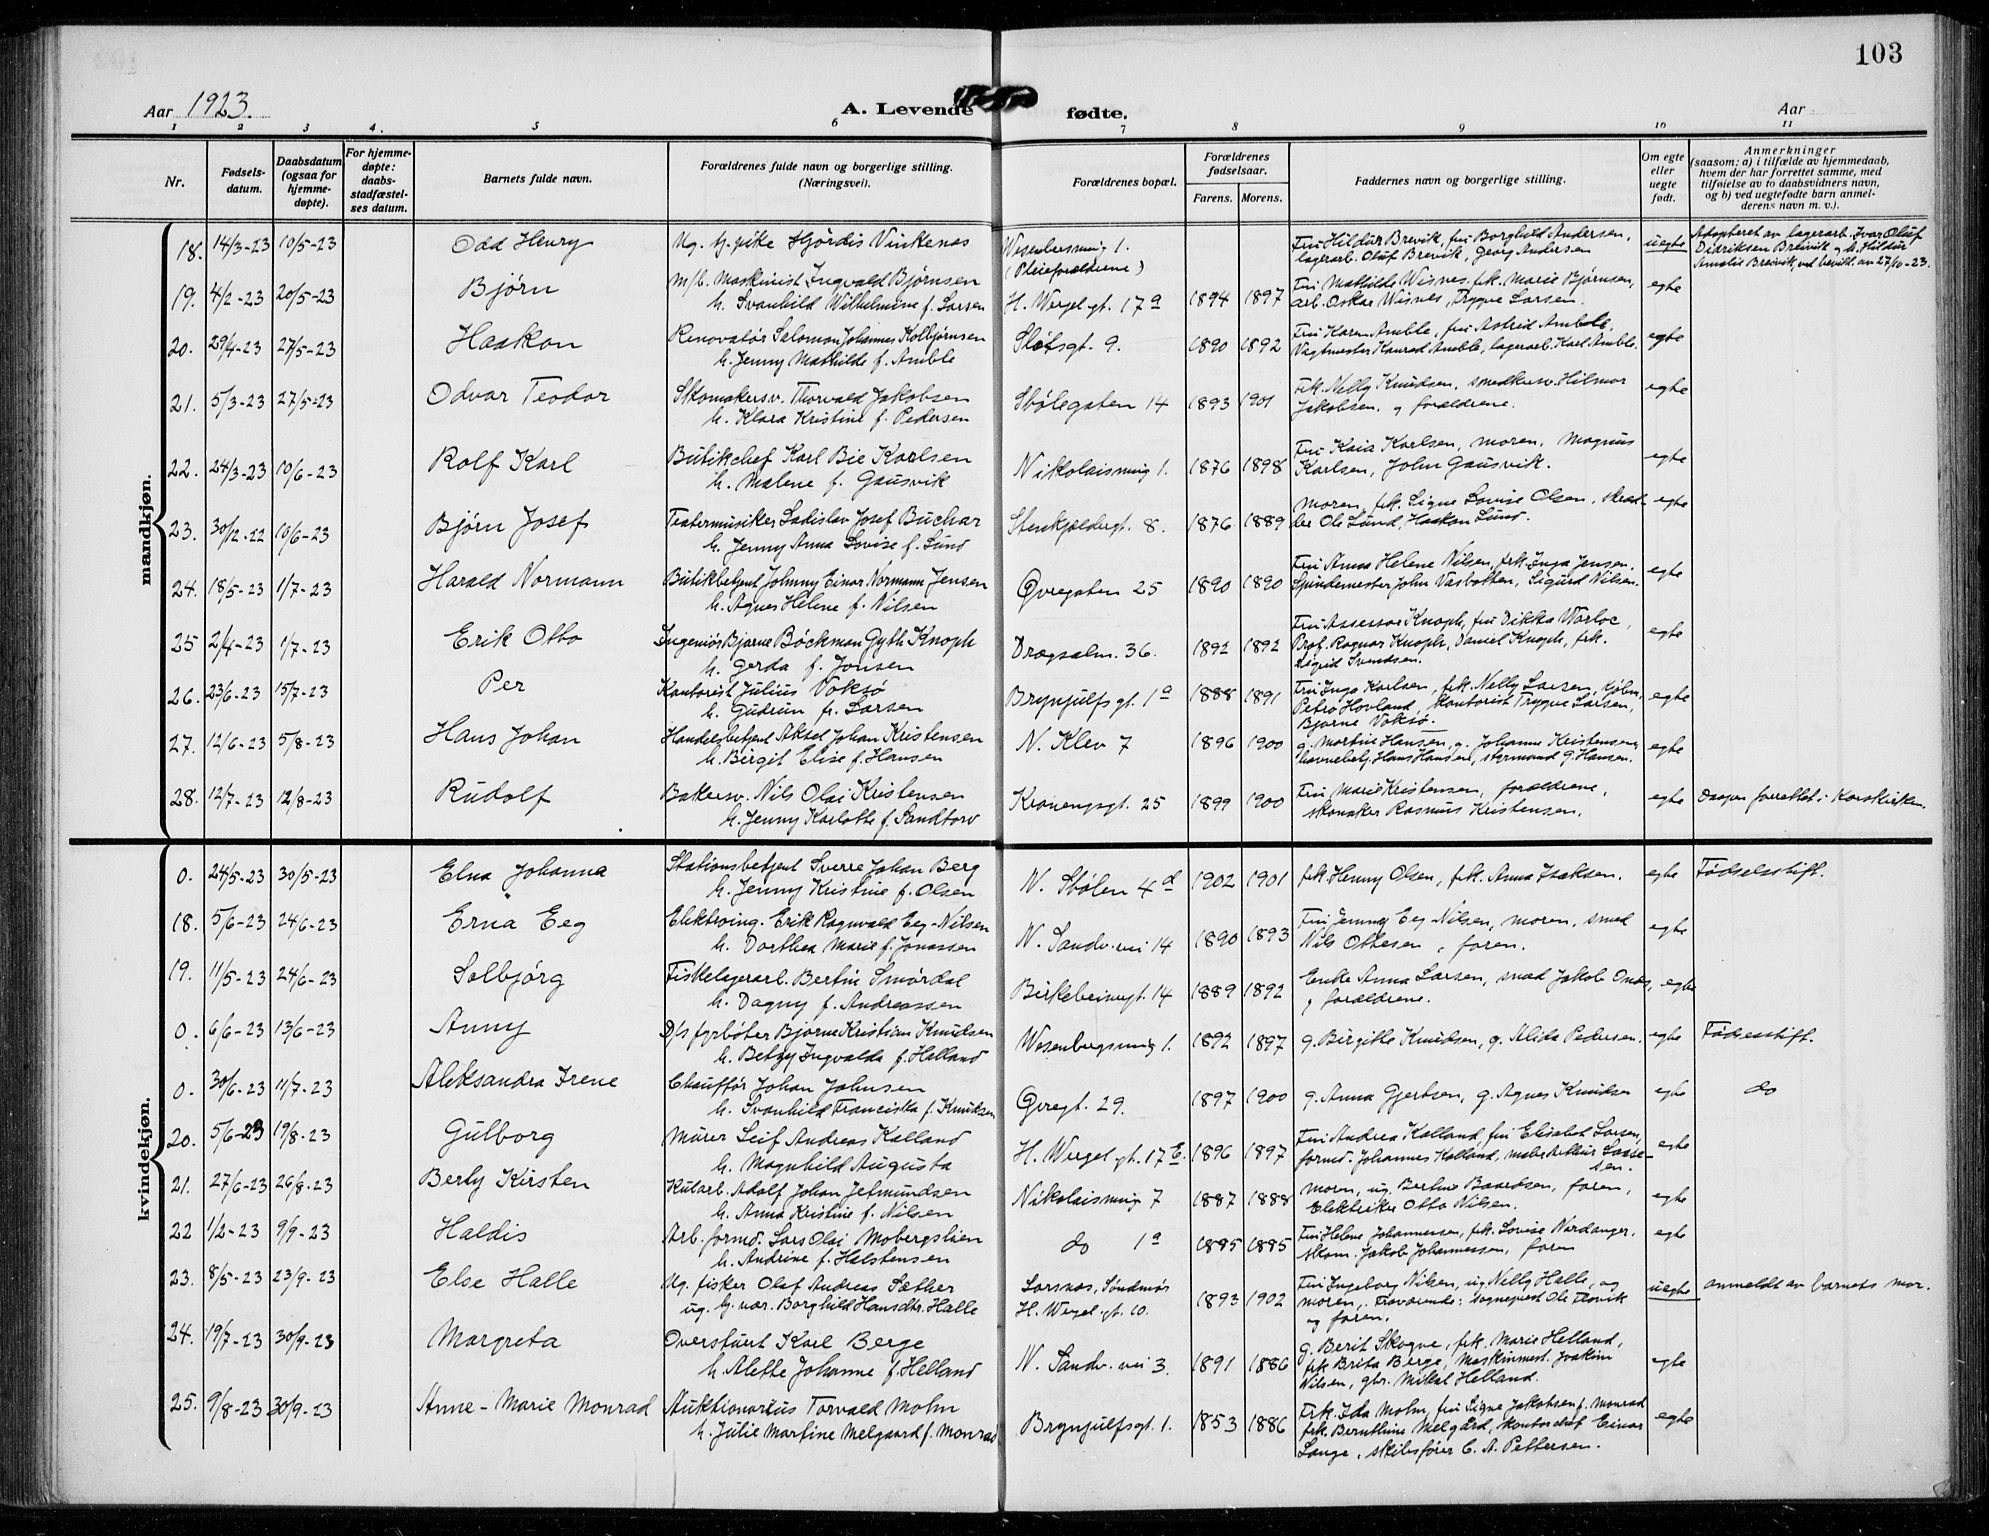 103
Aar 1923.
A. Levende fødte.
Aar
1 2 3 4. 5 6 7 8 9 10 11
Nr.
Fødsels-
datum.
Daabsdatum
(ogsaa for
hjemme-
døpte).
For hjemme-
døpte:
daabs-
stadfæstel-
ses datum.
Barnets fulde navn.
Forældrenes fulde navn og borgerlige stilling.
(Næringsvei).
Forældrenes bopæl.
Forældrenes
fødselsaar.
Farens. Morens.
Faddernes navn og borgerlige stilling.
Om egte
eller
uegte
født.
Anmerkninger
(saasom: a) i tilfælde av hjemmedaab,
hvem der har forrettet samme, med
tilføielse av to daabsvidners navn,
og b) ved uegtefødte barn anmel-
derens navn m. v.).
mandkjøn.
18. 14/3-23 10/5-23 Odd Henry Ug. tj. pike Hjördis Vinkenes Wesenbergsmug 1. Fru Hildur Brevik, fru Borghild Andersen, uegte Adopteret av lagerarb. Ivar Oluf
(Pleieforældrene) lagerarb. Oluf Brevik, Georg Andersen Didriksen Breivik og h. Hildur
Amalie Breivik, ved bevill. av 27/10-23.
19. 4/2-23 20/5-23 Bjørn m/b. Maskinist Ingvald Bjørnsen H. Wergel. gt. 17a 1894 1897 Fru Mathilde Wisnes, frk. Marie Bjørnsen, egte
h. Svanhild Wilhelmine f. Larsen arb. Oskar Wisnes, Trygve Larsen.
20. 29/4-23 27/5-23 Haakon Renovatør Salomon Johannes Kolbjørnsen Slotsgt. 9. 1890 1892 Fru Karen Amble, fru Astrid Amble, egte
h. Jenny Mathilde f. Amble Vagtmester Konrad Amble, lagerarb. Karl Amble.
21. 5/3-23 27/5-23 Odvar Teodor Skomakersv. Thorvald Jakobsen Stölegaten 14 1893 1901 Frk. Nelly Knudsen, smedkersv. Hilmar egte
h. Klara Kristine f. Pedersen Jakobsen, og forældrene.
22. 24/3-23 10/6-23 Rolf Karl Butikchef Karl Bie Karlsen Nikolaismug 1. 1876 1898 Fru Kaia Karlsen, moren, Magnus egte
h. Malene f. Gausvik Karlsen, John Gausvik.
23. 30/12-22 10/6-23 Bjørn Josef Teatermusiker Ladislav Josef Buchar Stenkjeldergt. 8. 1876 1889 moren, frk. Signe Lovise Olsen, skræd- egte
h. Jenny Anna Lovise f. Lund der Ole Lund, Haakon Lund.
24. 18/5-23 1/7-23 Harald Normann Butikbetjent Johnny Einar Normann Jensen Øvregaten 25 1890 1890 Fru Anna Helene Nilsen, frk. Inga Jensen. egte
h. Agnes Helene f. Nilsen Spindemester John Vasbotten, Sigurd Nilsen.
25 2/4-23 1/7-23 Erik Otto Ingeniør Bjarne Böckman Gyth Knoph Dragsalm. 36. 1892 1892 Fru Assessor Knoph, fru Dikka Warloe, egte
h. Gerda f. Jonsen Prof. Ragnar Knoph, Daniel Knoph, frk.
Sigrid Svendsen.
26. 23/6-23 15/7-23 Per Kontorist Julius Voksø Brynjulfs gt. 1a 1888 1891 Fru Inga Karlsen, frk. Nelly Larsen, kjøbm. egte
h. Gudrun f. Larsen Petro Hovland, kontorist Trygve Larsen,
Bjarne Voksø.
27. 12/6-23 5/8-23 Hans Johan Handelsbetjent Aksel Johan Kristensen N. Klev 7 1896 1900 g. Martine Hansen, g. Johanne Kristensen, egte
h. Birgit Elise f. Hansen havnebetj. Hans Hansen, styrmand G. Hansen.
28. 12/7-23 12/8-23 Rudolf Bakersv. Nils Olai Kristensen Kronengsgt. 25 1899 1900 Fru Marie Kristensen, forældrene, egte Daapen forrettet i Korskirken.
h. Jenny Karlotte f. Sandtorv skomaker Rasmus Kristensen.
kvindekjøn.
0. 24/5-23 30/5-23 Elna Johanna Stationsbetjent Sverre Johan Berg N. Stölen 4d 1902 1901 frk. Henny Olsen, frk. Anna Isaksen. egte Fødselsstift.
h. Jenny Kristine f. Olsen
18. 5/6-23 24/6-23 Erna Eeg Elektroing. Erik Ragnvald Eeg-Nilsen N. Sandv. vei 14 1890 1893 Fru Jenny Eeg Nilsen, moren, smed egte
h. Dorthea Marie f. Jonassen Nils Ottesen, faren.
19. 11/5-23 24/6-23 Solbjørg Fiskelagerarb. Bertin Smördal Birkebeinergt. 14 1889 1892 Enke Anna Larsen, smed Jakob Onæs, egte
h. Dagny f. Andreassen og forældrene.
0. 6/6-23 13/6-23 Anny D/s fyrbøter Bjarne Kristian Knudsen Wesenbergsmug 1. 1892 1897 g. Birgitte Knudsen, g. Alida Pedersen. egte Fødsesstift.
h. Betzy Ingvalda f. Helland
0. 30/6-23 11/7-23 Aleksandra Irene Chauffør Johan Johnsen Øvregt. 29. 1897 1900 g. Anna Gjertsen, g. Agnes Knudsen egte do
h. Svanhild Franciska f. Knudsen
20. 5/6-23 19/8-23 Gulborg Murer Leif Andreas Kalland H. Wergel. gt. 17E. 1896 1897 Fru Andrea Kalland, fru Elisabet Larsen, egte
h. Magnhild Augusta formd. Johannes Kalland, maler Arthur Lasse-
sen.
21. 27/6-23 26/8-23 Berly Kirsten Kularb. Adolf Johan Jetmundsen Nikolaismug 7 1887 1888 moren, ug. Bertine Baardsen, faren, egte
h. Anna Kristine f. Nilsen Elektriker Otto Nilsen.
22 1/2-23 9/9-23 Haldis Arb. formd. Lars Olai Mobergslien do 1a 1885 1885 Fru Helene Johannessen, frk. Lovise Nordanger, egte
h. Andrine f. Halstensen skom. Jakob Johannessen, faren
23. 8/5-23 23/9-23 Else Halle Ug. fisker Olaf Andreas Sæther Larsnes, Söndmör 1893 1902 Fru Ingeborg Nilsen, ug. Nelly Halle, og uegte anmeldt av barnets mor.
ug. h. vær. Borghild Hansdtr. Halle H. Wergel. gt. 10. moren. Fraværende: sogneprest Ole Flovik
og faren.
24. 19/7-23 30/9-23 Margreta Overstuert Karl Berge N. Sandv. vei 3. 1891 1886 g. Berit Skogne, frk. Marie Helland, egte
h. Alette Johanne f. Helland frk Brita Berge, Maskinmest. Joakim
Nilsen, gbr. Mikal Helland.
25. 9/8-23 30/9-23 Anne-Marie Monrad Auktionarius Torvald Mohn Brynjulfsgt. 1. 1853 1886 Frk. Ida Mohn, fru Signe Jakobsen f. Monrad egte
h. Julie Martine Melgaard f. Monrad frk. Bernthine Melgård, kontorchef Einar
Lange, skibsfører C. A. Pettersen.